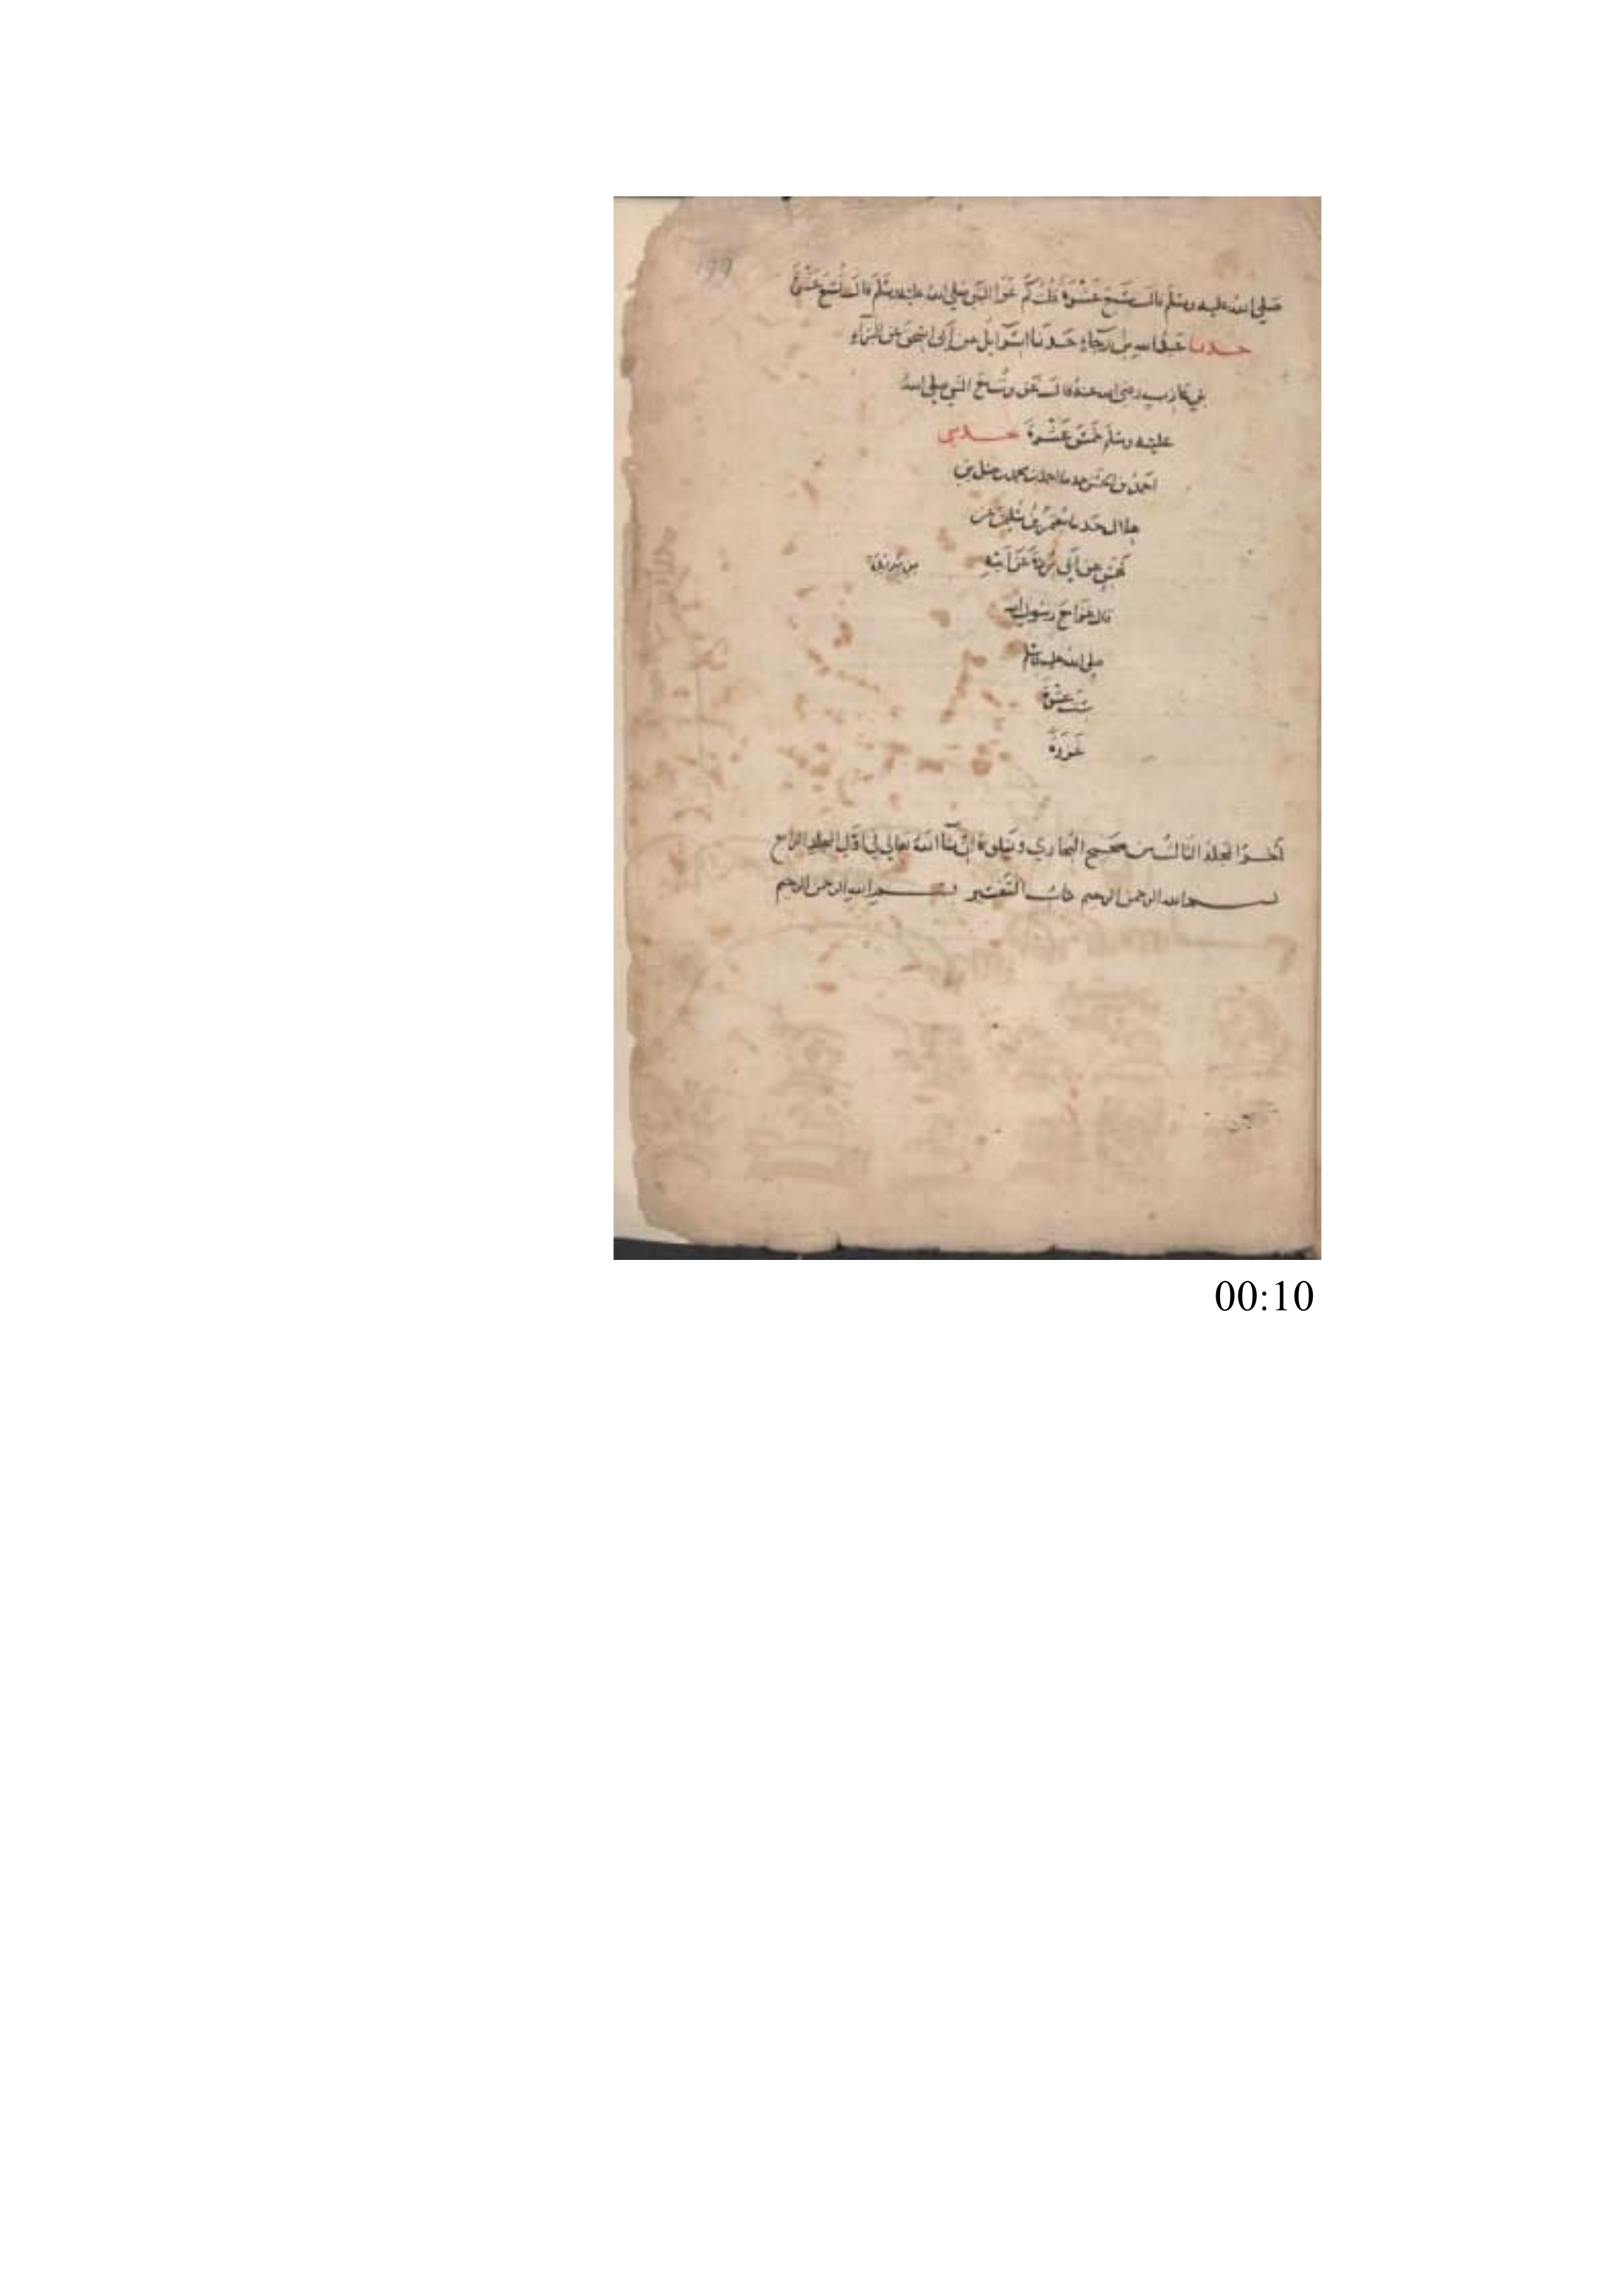 199
صلى الله عليه وسلم قال سبع عشرة قلت كم غزا النبي صلى الله عليه وسلم قال تسع عشرة
حدثنا عبد الله بن رجاء حدثنا اسرائيل عن أبي اسحق عن البراء
رضي الله عنه قال النبي صلى الله
عليه وسلم خمس عشرة حدثني
احمد بن الحسن حدثنا احمد بن محمد بن حنبل بن
هلال حدثنا معتمر بن سليمن عن
كهمس عن ابن بريدة عن أبيه
قال غزا مع رسول الله
صلى الله عليه وسلم
ست عشرة
غزوة
آخر المجلد الثالث من صحيح البخاري ويتلوه ان شاء الله تعالى في اول المجلد الرابع
بسم الله الرحمن الرحيم كتاب التفسير بسم الله الرحمن الرحيم
00:10